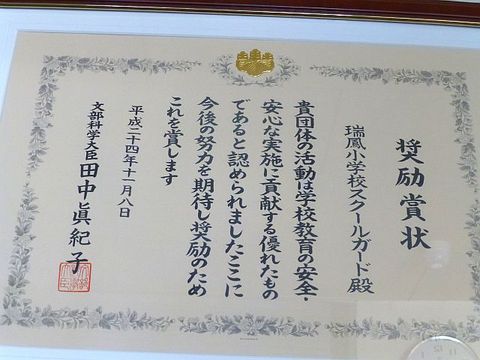 奨励賞状
瑞鳳小学校スクールガード殿
貴団体の活動は学校教育の安全・
安心な実施に貢献する優れたもの
であると認められましたここに
今後の努力を期待し奨励のため
これを賞します
平成二十四年十一月八日
文部科学大臣 田中眞紀子